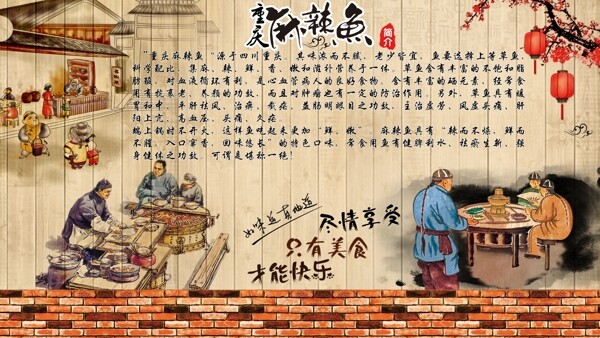 重庆麻辣鱼
简介
"重庆麻辣鱼"源于四川重庆,其味浓而不腻,老少皆宜,鱼要选择上等草鱼,
科学配比,集麻、辣、鲜、香、嫩和滋补营养于一体,草鱼含有丰富的不饱和脂
肪酸,对血液循环有利,是心血管病人的良好食物,含有丰富的硒元素,经常食
用有抗衰老、养颜的功效,而且对肿瘤也有一定的防治作用。另外,草鱼具有暖
胃和中、平肝祛风、治痹、截疟、益肠明眼目之功效,主治虚劳、风虚头痛、肝
阳上亢、高血压、头痛、久疟。
端上锅时不开火,这样鱼吃起来更加"鲜、嫩" 麻辣鱼具有"辣而不燥、鲜而
不腥、入口窜香、回味悠长"的特色口味,常食用鱼有健脾利水、祛瘀生新、强
身健体之功效,可谓是煤称一绝!
如味近其地道
尽情享受
只有美食
才能快乐